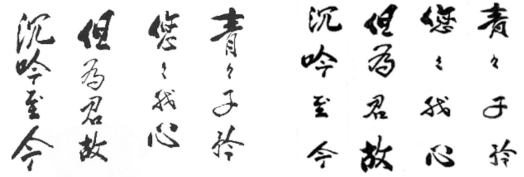 青々子衿
悠々我心
但為君故
沉吟至今
青々子衿
悠々我心
但為君故
沉吟至今